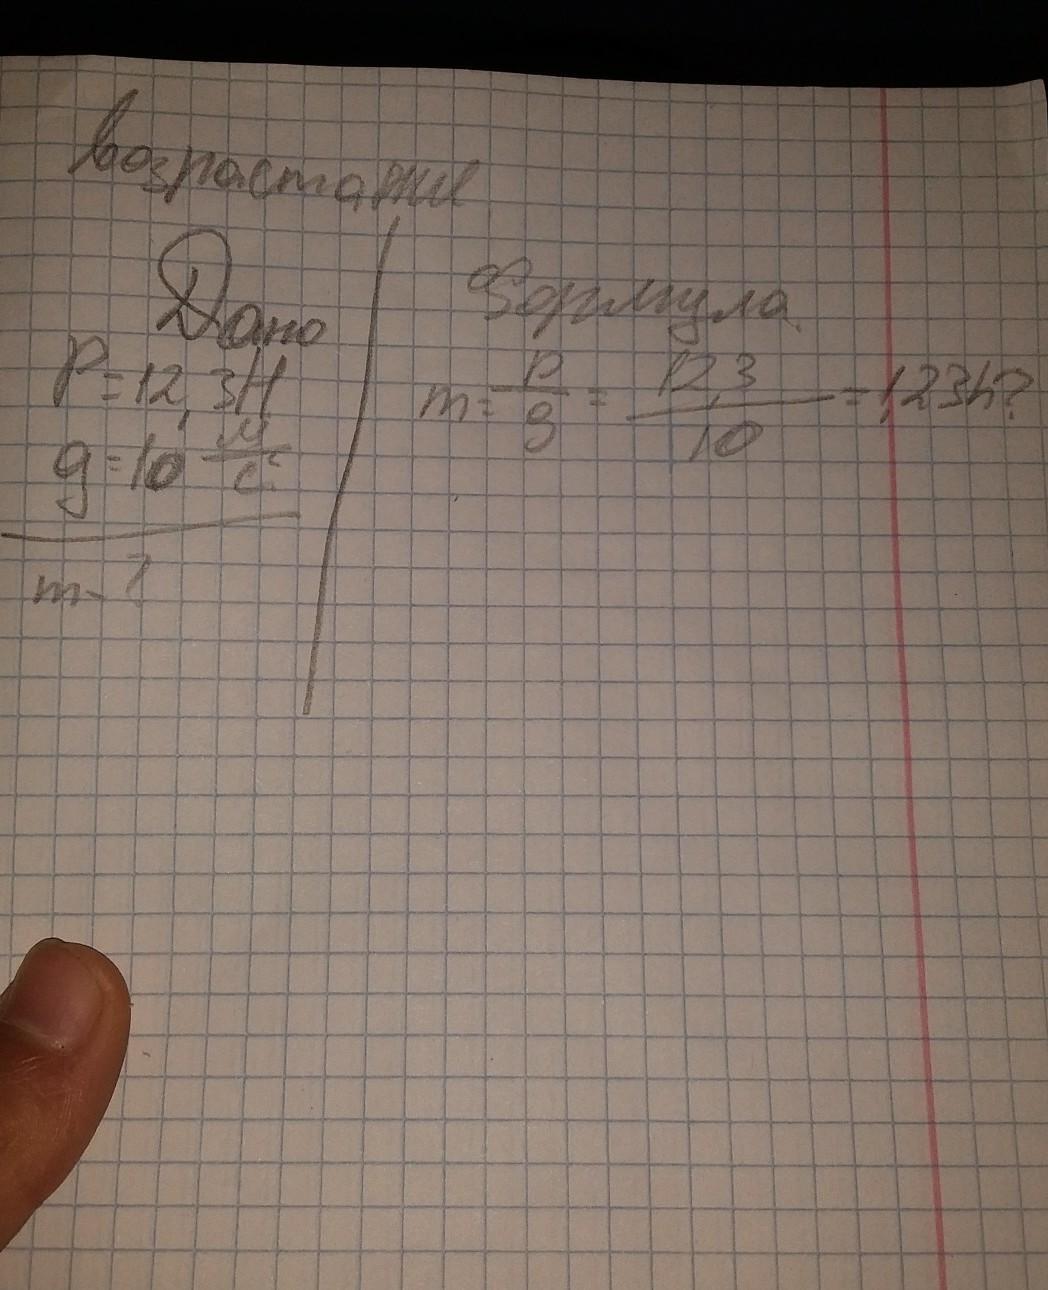 возрастание
Дано
P=12,3H
g=10 м/с
m-?
Формула
m= P/g = 12,3/10 = 1,23